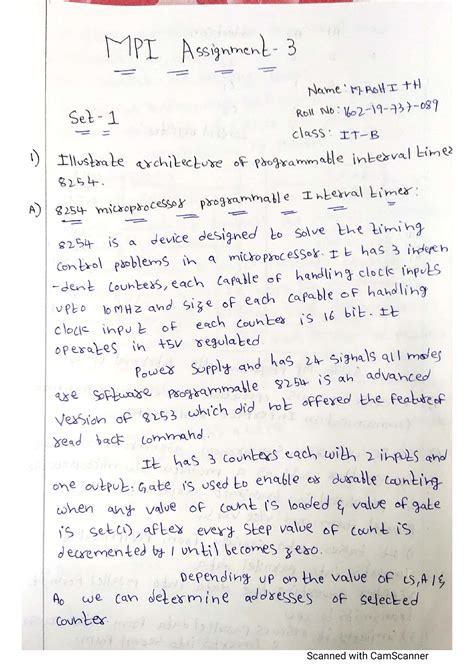 MPI Assignment - 3
Name: M. ROHITH
Roll No: 1602-19-737-089
Set - 1
class: IT-B
1) Illustrate architecture of programmable interval timer
8254.
A) 8254 microprocessor programmable Interval timer:
8254 is a device designed to solve the timing
control problems in a microprocessor. It has 3 indepen
-dent counters, each capable of handling clock inputs
upto 10MHz and size of each capable of handling
clock input of each counter is 16 bit. It
operates in +5V regulated.
Power supply and has 24 signals all modes
are software programmable 8254 is an advanced
version of 8253 which did not offered the feature of
read back command.
It has 3 counters each with 2 inputs and
one output. Gate is used to enable or durable counting
when any value of count is loaded & value of gate
is set(1), after every step value of count is
decremented by 1 until becomes zero.
Depending up on the value of CS, A1 &
A0 we can determine addresses of selected
counter.
Scanned with CamScanner